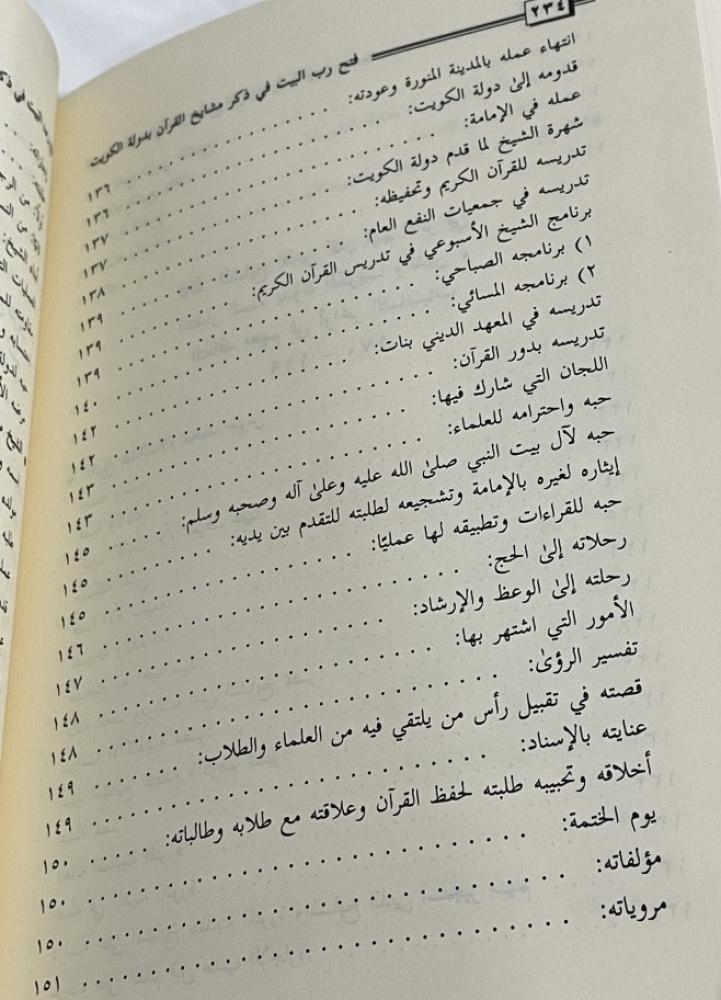 ٢٣٤
فتح رب البيت في ذكر مشايخ القرآن بدولة الكويت
انتهاء عمله بالمدينة المنورة وعودته: ١٣٦
قدومه إلى دولة الكويت: ١٣٦
عمله في الإمامة: ١٣٧
شهرة الشيخ لما قدم دولة الكويت: ١٣٧
تدريسه للقرآن الكريم وتحفيظه: ١٣٨
تدريسه في جمعيات النفع العام: ١٣٩
برنامج الشيخ الأسبوعي في تدريس القرآن الكريم: ١٣٩
١) برنامجه الصباحي: ١٣٩
٢) برنامجه المسائي: ١٤٠
تدريسه في المعهد الديني بنات: ١٤٢
تدريسه بدور القرآن: ١٤٢
اللجان التي شارك فيها: ١٤٣
حبه واحترامه للعلماء: ١٤٣
حبه لآل بيت النبي صلى الله عليه وعلى آله وصحبه وسلم: ١٤٥
إيثاره لغيره بالإمامة وتشجيعه لطلبته للتقدم بين يديه: ١٤٥
حبه للقراءات وتطبيقه لها عمليًا: ١٤٥
رحلاته إلى الحج: ١٤٦
رحلته إلى الوعظ والإرشاد: ١٤٧
الأمور التي اشتهر بها: ١٤٨
تفسير الرؤى: ١٤٨
قصته في تقبيل رأس من يلتقي فيه من العلماء والطلاب: ١٤٩
عنايته بالإسناد: ١٤٩
أخلاقه وتحبيبه طلبته لحفظ القرآن وعلاقته مع طلابه وطالباته: ١٥٠
يوم الختمة: ١٥٠
مؤلفاته: ١٥٠
مروياته: ١٥١